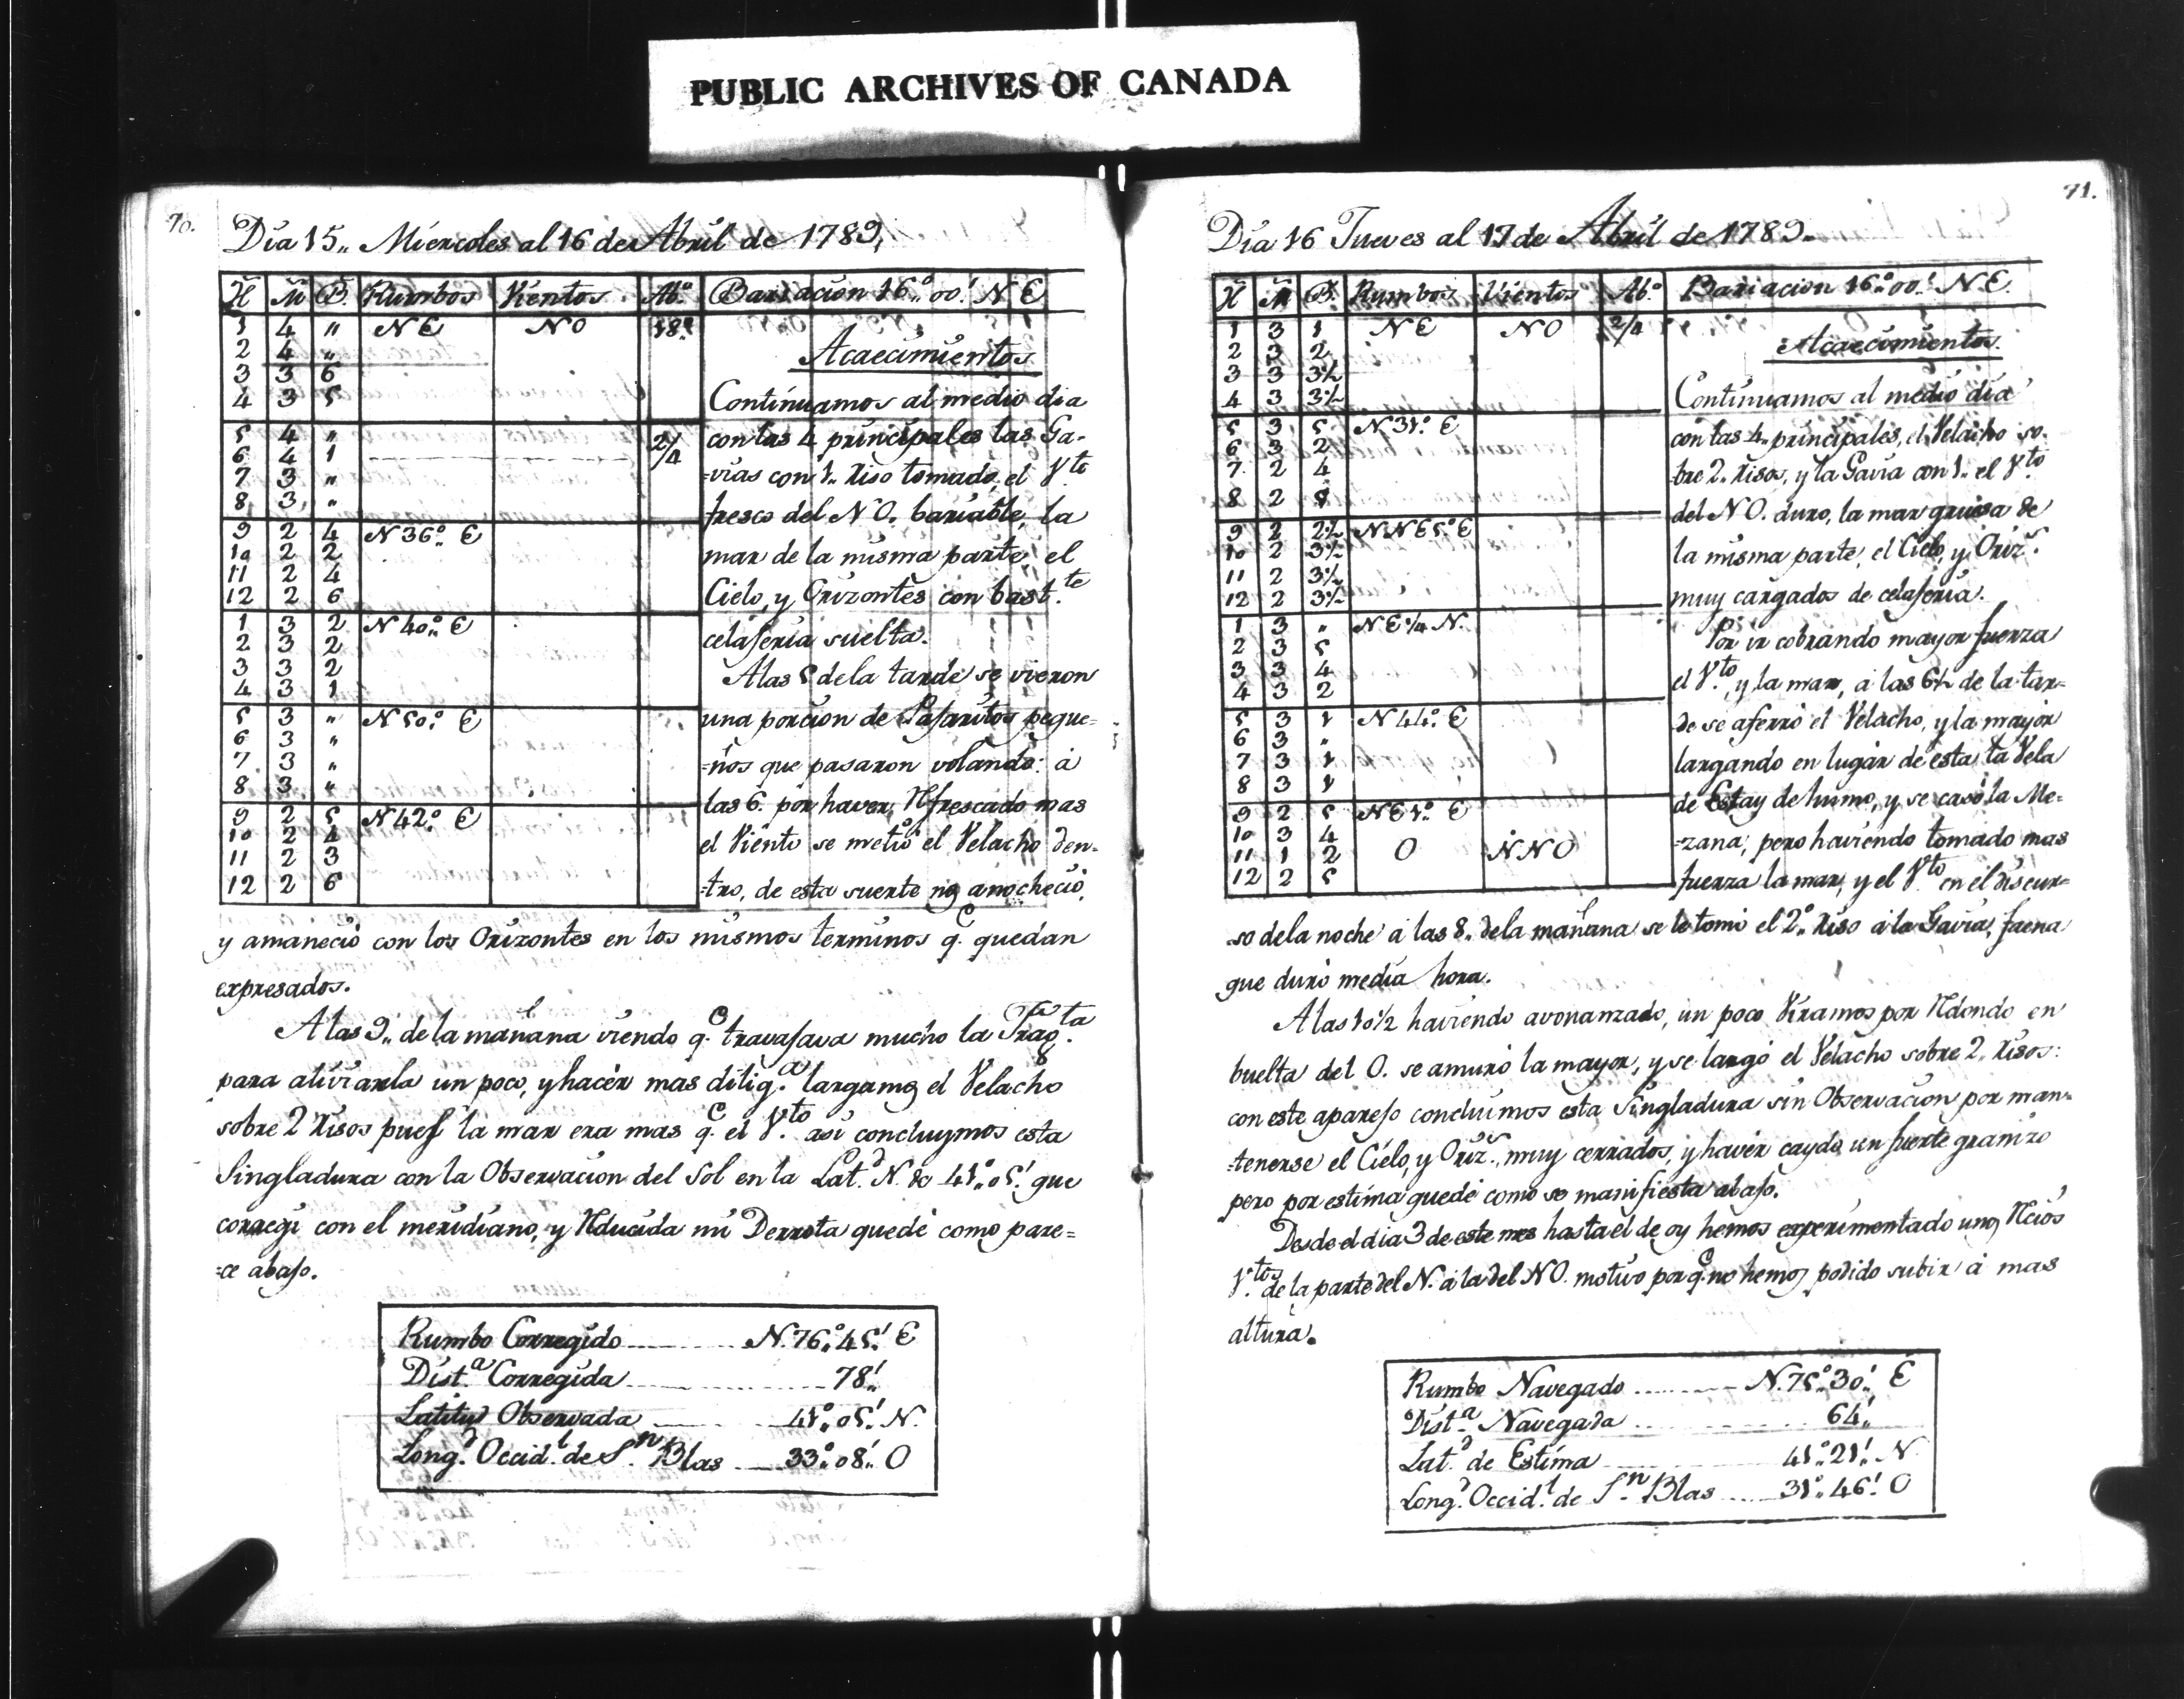 PUBLIC ARCHIVES OF CANADA
70.
Dia 15,, Miercoles al 16 de Abril de 1789,
H M B. Rumbos Vientos Ab.º Bariacion 16,,º 00.' N E
1 4 ,, N E N O 18º
2 4 ,,
3 3 6
4 3 5
5 4 ,, 2/4
6 4 1
7 3 ,,
8 3 ,,
9 2 4 N 36º E
10 2 2
11 2 4
12 2 6
1 3 2 N 40,,º E
2 3 2
3 3 2
4 3 1
5 3 ,, N 50.º E
6 3 ,,
7 3 ,,
8 3 ,,
9 2 5 N 42.º E
10 2 4
11 2 3
12 2 6
Acaecimientos
Continuamos al medio dia
con las 4 principales las Ga-
=vias con 1,, Riso tomado, el V.to
fresco del N O. bariable, la
mar de la misma parte, el
Cielo, y Orizontes con bast.te
celaferia suelta.
A las 5 de la tarde se vieron
una porcion de Pafaritos peque=
=ños que pasaron volando: á
las 6. por haver Rfrescado mas
el Viento se metio el Velacho den-
=tro, de esta suerte nos anocheció,
y amaneció con los Orizontes en los mismos terminos q.e quedan
expresados.
A las 9,, de la mañana viendo q.e travafava mucho la Frag.ta
para aliviarla un poco, y hacer mas dilig.a largamos el Velacho
sobre 2 Risos pues la mar era mas q.e el V.to asi concluymos esta
Singladura con la Observacion del Sol en la Lat.d N. de 41,,º 05.' que
corregi con el meridiano, y Rducida mi Derrota quedé como pare=
=ce abafo.
Rumbo Corregido N. 76,,º 45.' E
Dist.a Corregida 78,,'
Latitud Observada 41,,º 05.' N.
Long.d Occid.l de S.n Blas 33,,º 08.' O
71.
Dia 16 Jueves al 17 de Abril de 1789..
H M B. Rumbos Vientos Ab.º Bariacion 16,,º 00.' N E.
1 3 1 N E N O 2/4
2 3 2
3 3 3½
4 3 3½
5 3 5 N 31.º E
6 3 2
7 2 4
8 2 5
9 2 2½ N N E 5.º E
10 2 3½
11 2 3½
12 2 3½
1 3 ,, N E ¼ N.
2 3 5
3 3 4
4 3 2
5 3 1 N 44.º E
6 3 ,,
7 3 1
8 3 1
9 2 5 N E 1.º E
10 3 4
11 1 2 O N N O
12 2 5
Acaecimientos.
Continuamos al medio dia
con las 4,, principales, el Velacho so-
bre 2,, Risos, y la Gavia con 1,, el V.to
del N O. duro, la mar gruesa de
la misma parte, el Cielo, y Oriz.s
muy cargados de celaferia.
Por ir cobrando mayor fuerza
el V.to y la mar, á las 6½ de la tar=
de se aferró el Velacho, y la mayor
largando en lugar de esta la Vela
de Estay de humo, y se casó la Me-
=zana; pero haviendo tomado mas
fuerza la mar, y el V.to en el discur=
so de la noche á las 8,, de la mañana se le tomó el 2,,º Riso á la Gavia, faena
que duró media hora.
A las 10½ haviendo avonanzado, un poco Viramos por Rdondo en
buelta del O. se amuró la mayor, y se largó el Velacho sobre 2,, Risos:
con este aparefo concluimos esta Singladura sin Observacion por man=
=tenerse el Cielo, y Oriz.s muy cerrados, y haver caydo un fuerte granizo
pero por estima quedé como se manifiesta abafo.
Desde el dia 3 de este mes hasta el de oy hemos experimentado unos Rcios
V.tos de la parte del N. á la del N O. motivo por q.e no hemos podido subir á mas
altura.
Rumbo Navegado N. 75,,º 30.' E
Dist.a Navegada 64,,'
Lat.d de Estima 41,,º 21.' N
Long.d Occid.l de S.n Blas 31,,º 46.' O